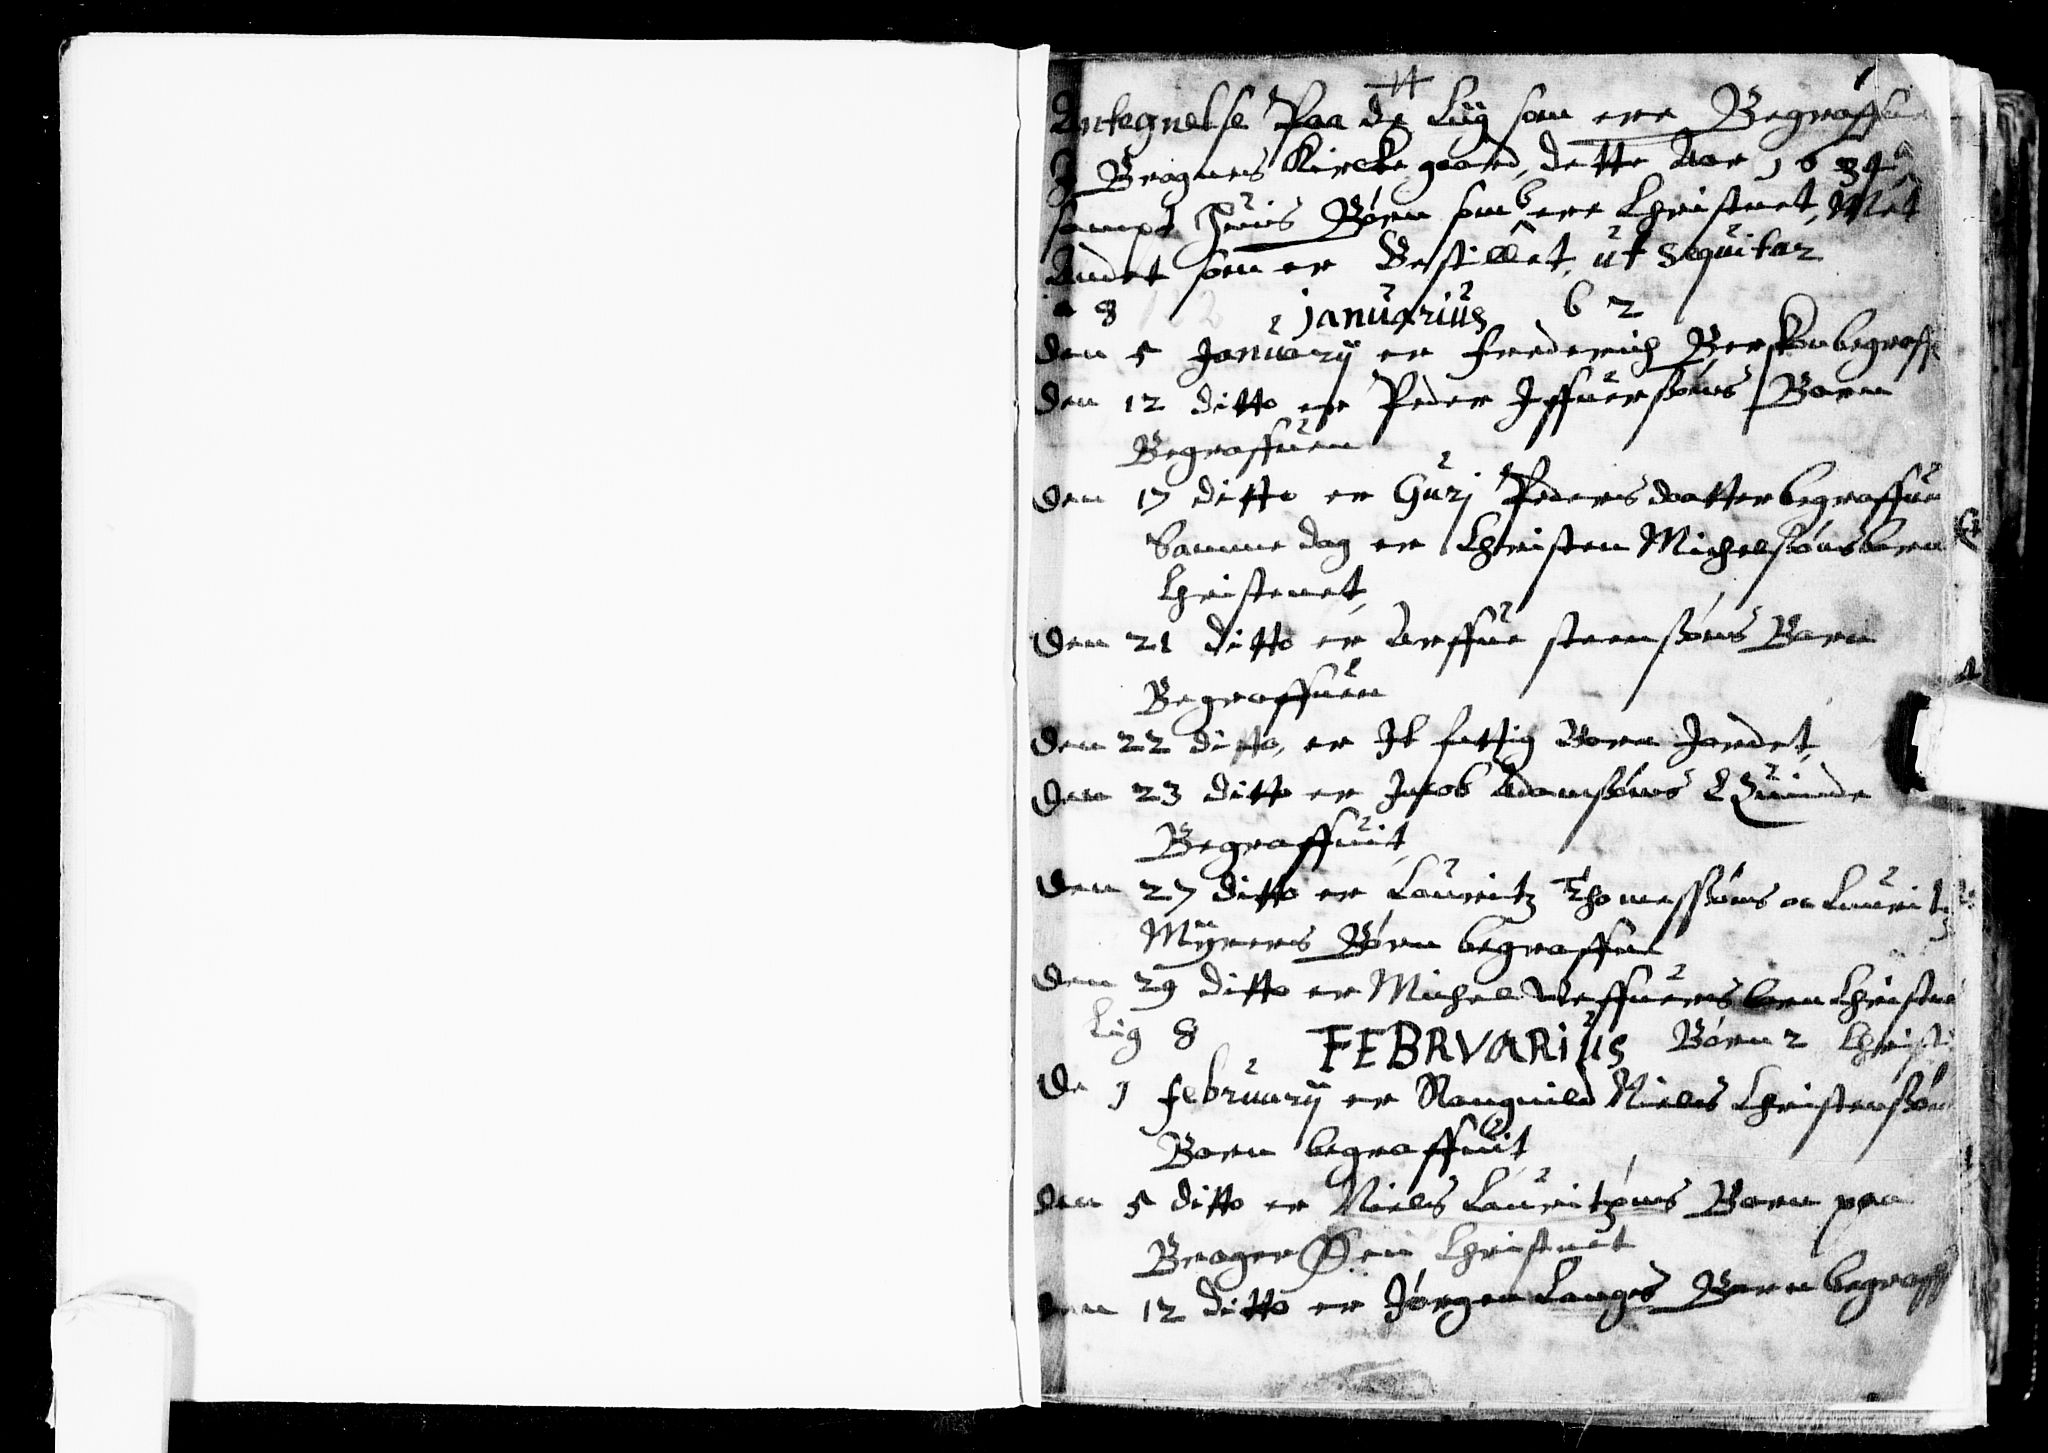 Antegnelse Paa de Liig som ere Begraffue
J Bragnes Kircke gaard, dette Aar 1634
sampt huis Børn som ere Christnet, Met
Andet som er Bestillet, ut sequitur
8 januarius 6 2
Den 5 Januarij er frederich begraff
Den 12 ditto er Peder Iffuersøns Barn
Begraffuen
Den 17 ditto er Guri Pedersdaatter begraffuen
Samme dag er Christen Michelsøns barn
Christenet,
Den 21 ditto er Arffue steensøns Barn
Begraffuen
Den 22 ditto, er It fattig Barn Jordet,
Den 23 ditto er Jacob Adamsøns Quinde
Begraffuit,
Den 27 ditto er Lauritz Thomessøns oc Lauritz
Mÿrers Børn begraffue
Den 29 ditto er Michel Weffuers barn Christne
Lig 8 FEBRVARIUS Børn 2 Christ
De 1 februarij er Rangnild Niels Christensøn
Barn begraffuit
Den 5 ditto er Niels Lauritzøns Barn paa
Brager Øen Christnet
Den 12 ditto er Jørgen Langes Barn begraff